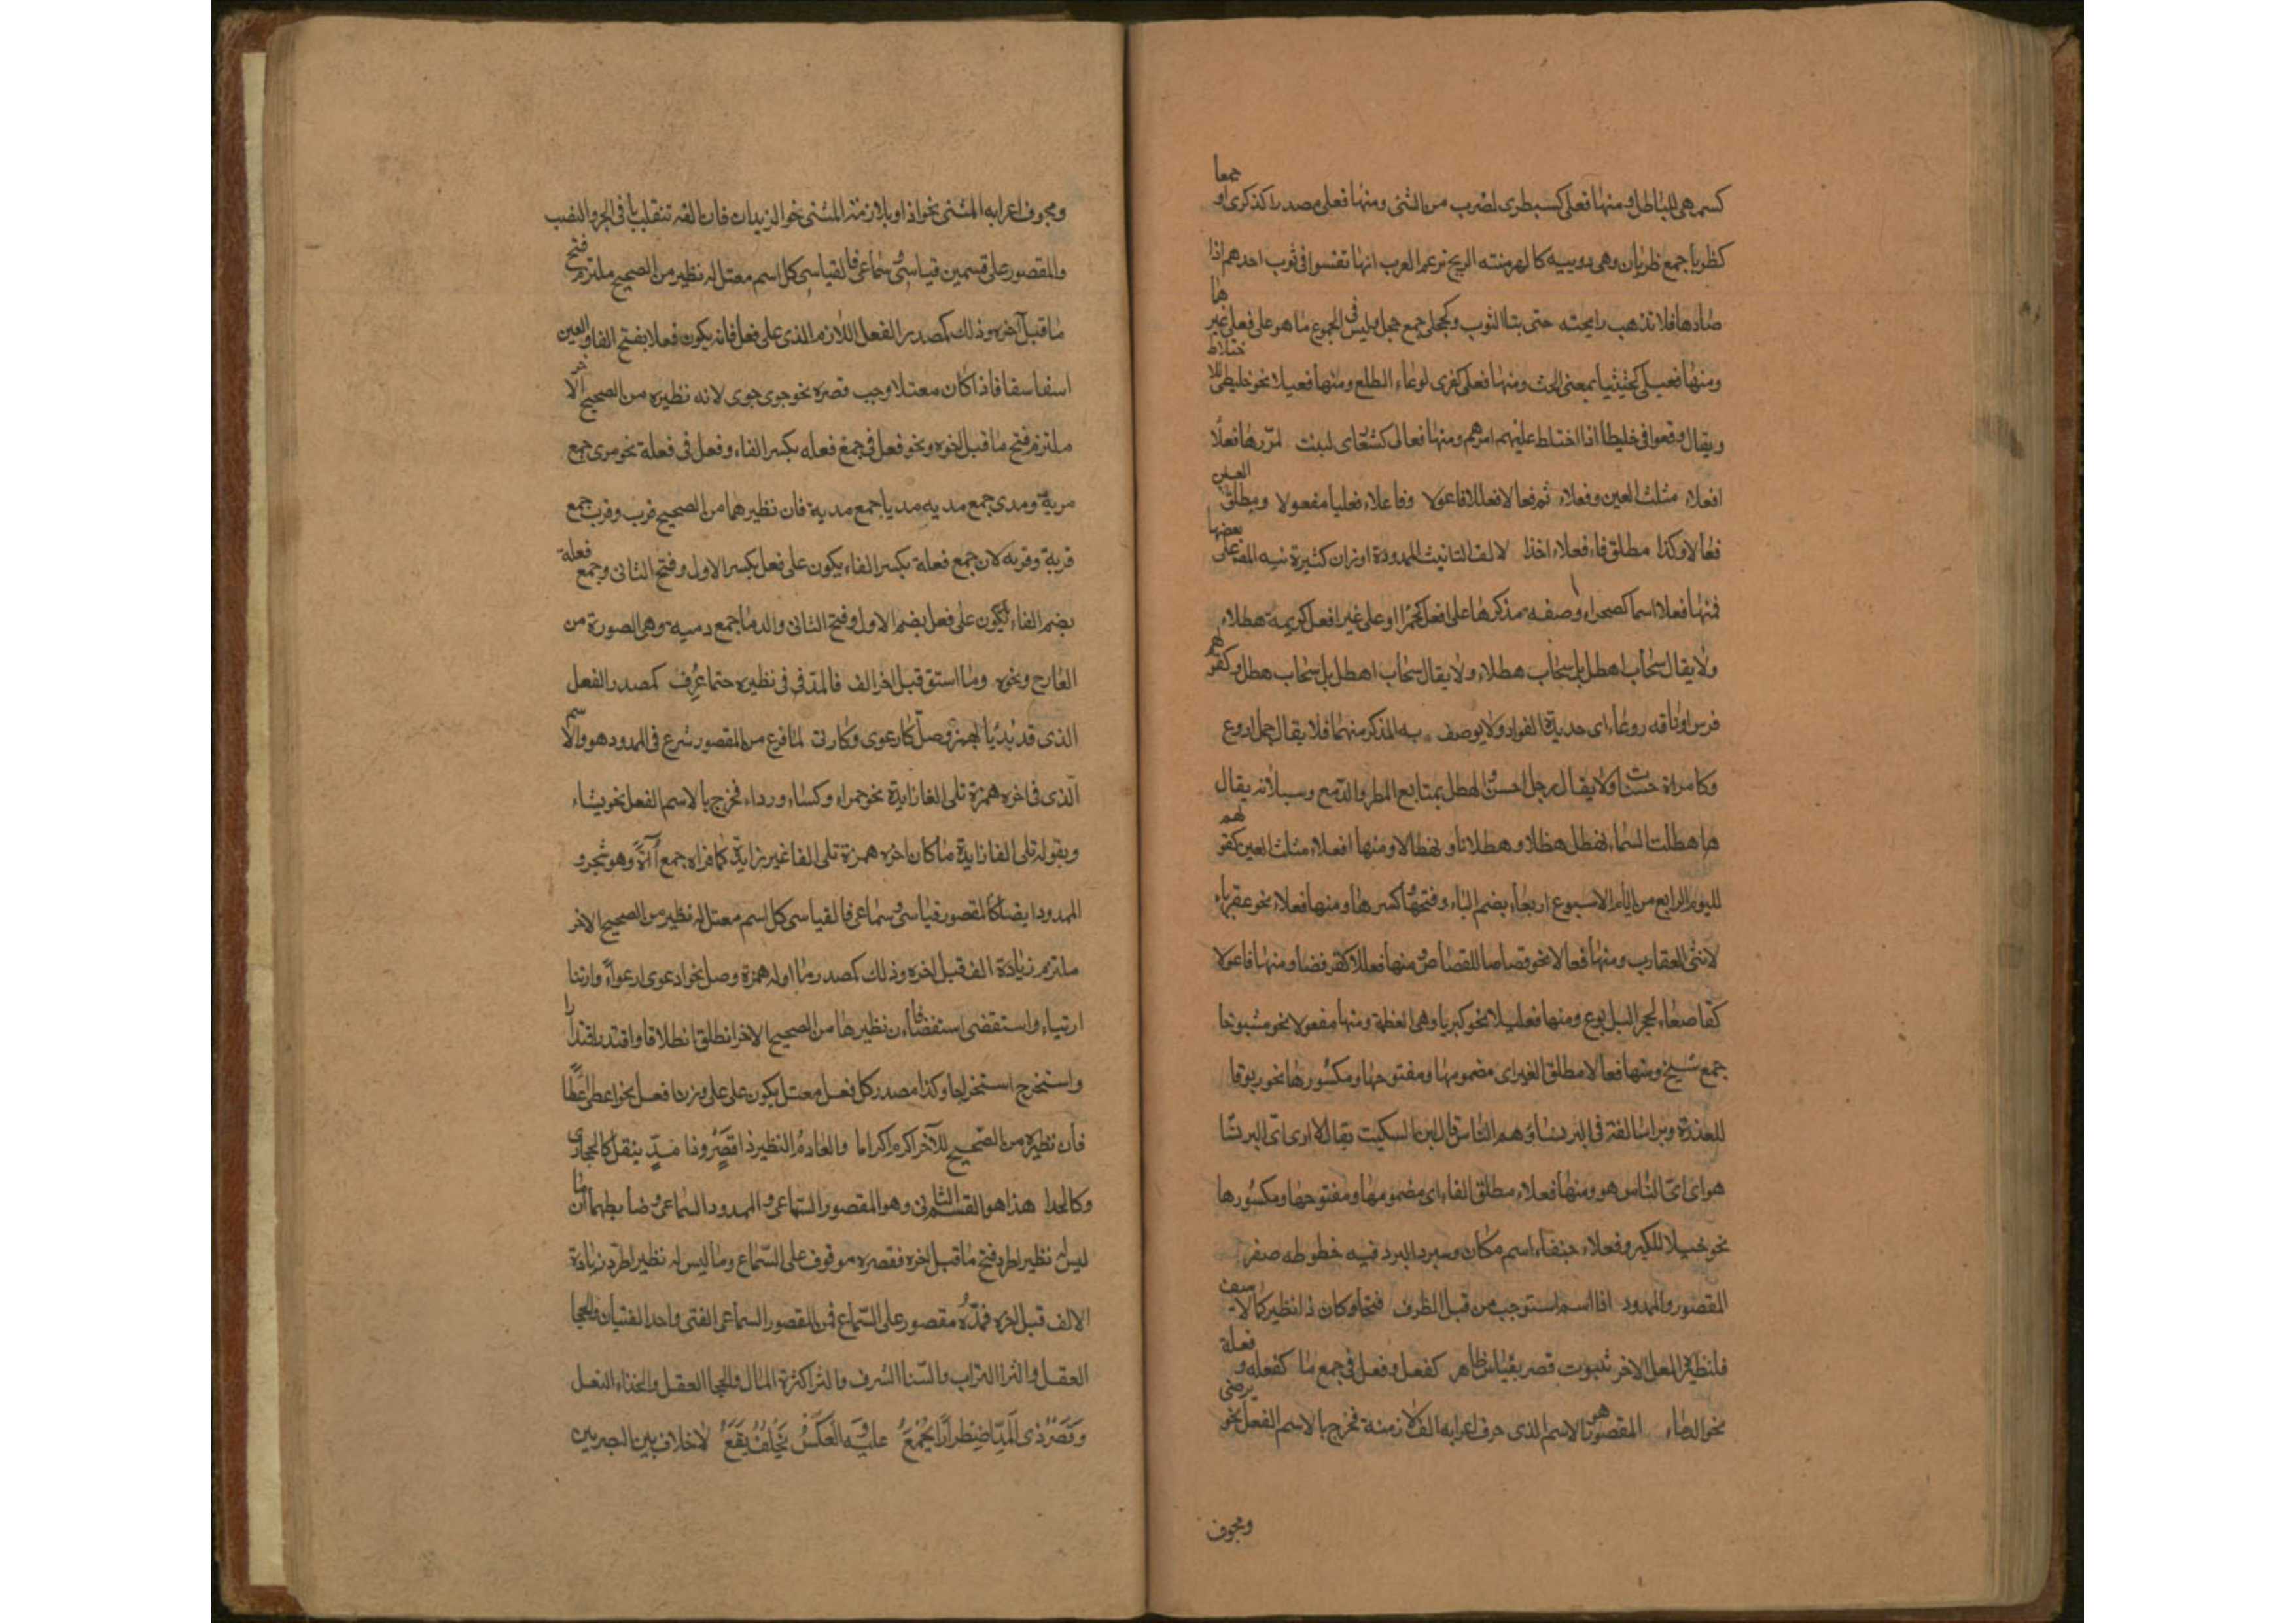 كسمهى للباطل ومنها فعلى كسبطرى لضرب من المشى ومنها فعلى مصدرا كذكرى او جمعا
كظربا جمع ظربان وهى دويبيه كالهر منتنه الريح تزعم العرب انها تفسوا فى ثوب احدهم اذا
صادها فلا تذهب رايحته حتى يبتا الثوب وكحجلى جمع حجل وليس فى الجموع ما هو على فعلى غيرها
ومنها فعيلى كحثيثيا بمعنى الحث ومنها فعلى كفرى لوعاء الطلع ومنها فعيلا نحو خليطى للاختلاط
ويقال وقعوا فى خليطا اذا اختلط عليهم امرهم ومنها فعالى كشقارى لنبت لمدّها فعلًا
افعلاء مثلث العين وفعلاء ثم فعالا فعللا فاعولا وفاعلاء فعليا مفعولا ومطلق العين
فعالا وكذا مطلق فاء فعلاء اخذا لالف التانيث الممدودة اوزان كثيرة نبه المص على بعضها
فمنها فعلا اسما كصحراء او صفه مذكرها على افعل كحمرا او على غير افعل كديمة هطلاء
ولا يقال سحاب اهطل بل سحاب هطلاء ولا يقال سحاب اهطل بل سحاب هطل وكقولهم
فرس اوناقه روغاء اى حديدة الفواد ولا يوصف به المذكر منهما فلا يقال جمل اروغ
وكامراة حسنا ولا يقال رجل احسن والهطل تتابع المطر والدمع وسيلانه يقال
ها هطلت السماء تهطل هطلا وهطلانا وتهطالا ومنها افعلاء مثلث العين كقولهم
لليوم الرابع من ايام الاسبوع اربعاء بضم الباء وفتحها وكسرها ومنها فعلاء نحو عقرباء
لانثى العقارب ومنها فعالا نحو قصاصا للقصاص ومنها فعللا كقرفصا ومنها فاعولا
كقاصعاء لجحر اليربوع ومنها فعليلا نحو كبريا وهى العظمة ومنها مفعولا نحو مشيوخا
جمع شيخ ومنها فعالا مطلق العين اى مضمومها ومفتوحها ومكسورها نحو بروقا
للعذرة وبراسا لغة فى البرنسا وهم الناس قال ابن السكيت يقال لا ادرى اى البرنسا
هو اى اىّ الناس هو ومنها فعلاء مطلق الفاء اى مضمومها ومفتوحها ومكسورها
نحو خيلا للكبر وفعلاء جنفاء اسم مكان وسيرا لبرد فيه خطوطه صفر
المقصور والممدود اذا اسم استوجب من قبل الطرف فتحا وكان ذا نظير كالاسف
فلنظيره المعل الاخر ثبوت قصر بقياس ظاهر كفعل وفعل فى جمع ما كفعله وفعلة
نحو الدماء المقصور هو الاسم الذى حرف اعرابه الف لازمنة فخرج بالاسم الفعل نحو يرضى
ومجوف
ومجوف اعرابه المثنى نحو اذا وبلازمة المثنى نحو الزيدان فان الفه تنقلب ياء فى الجر والنصب
والمقصور على قسمين قياسى وسماعى فالقياسى كل اسم معتل له نظير من الصحيح ملتزم فتح
ما قبل آخره وذلك كمصدر الفعل اللازم الذى على فعل فانه يكون فعلا بفتح الفا والعين
اسفا سفا فاذا كان معتلا وجب قصره نحو جوى جوى لانه نظيره من الصحيح الاخر
ملتزم فتح ما قبل اخره ونحو فعل فى جمع فعله بكسر الفاء وفعل فى فعلة نحو مرى جمع
مرية ومدى جمع مديه مديا جمع مدية فان نظيرهما من الصحيح قرب وقرب جمع
قربة وقربه لان جمع فعلة بكسر الفاء يكون على فعل بكسر الاول وفتح الثانى وجمع فعلة
بضم الفاء يكون على فعل بضم الاول وفتح الثانى والدما جمع دميه وهى الصورة من
العاج ونحوه وما استحق قبل اخر الف فالمد فى نظيره حتما عُرِف كمصدر الفعل
الذى قد بُدئيا بهمز وصل كارعوى وكارتى لما فرغ من المقصور شرع فى الممدود هو والاسم
الّذى فى اخره همزة تلى الفا زايدة نحو حمراء وكساء ورداء فخرج بالاسم الفعل نحو يشاء
وبقوله تلى الفا زايدة ما كان اخره همزة تلى الفا غير زايدة كماء واء جمع آاءة وهو شجر و
الممدود ايضا كالمقصور قياسى وسماعى فالقياسى كل اسم معتل له نظير من الصحيح الاخر
ملتزم زيادة الف قبل اخره وذلك كمصدر ما اوله همزة وصل نحو ارعوى ارعواءً وارتنا
ارتياء واستقضى استقضاء فان نظيرها من الصحيح الاخر انطلق انطلاقا واقتدر اقتدارا
واستخرج استخراجا وكذا مصدر كل فعل معتل يكون على على وزن افعل نحو اعطى اعطًا
فان نظيره من الصحيح للآخر اكرم اكراما والعادمُ النظير ذا قصرٍ وذا مدّ بنقل كالحجا وى
وكالحذا هذا هو القسم الثانى وهو المقصور السماعى والممدود السماعى وضابطهما ان ما
ليس له نظير اطرد فتح ما قبل اخره فقصره موقوف على السّماع وما ليس له نظير اطرد زيادة
الالف قبل اخره فمدّه مقصور على السّماع فمن المقصور السماعى الفتى واحد الفتيان والحجا
العقل والثرا التراب والسّنا الشرف والثرا كثرة المال والحجا العقل والحذاء النعل
وَقَصْرُ ذى المَدّ اضِطرارًا يُجْمَعُ عليه والعَكسُ بخُلفٍ يَقَعُ لاخلاف بين البصريين